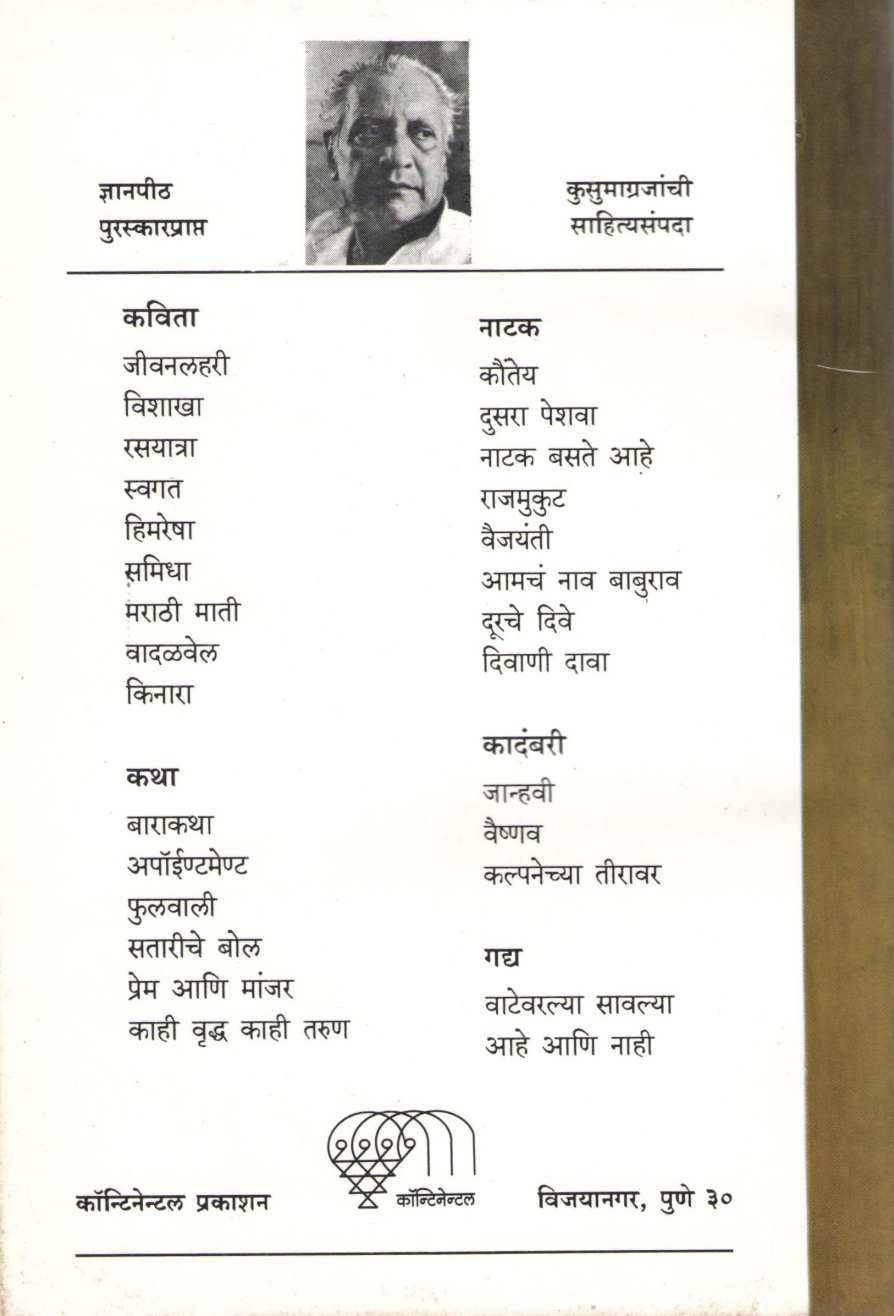 ज्ञानपीठ
पुरस्कारप्राप्त
कुसुमाग्रजांची
साहित्यसंपदा
कविता
जीवनलहरी
विशाखा
रसयात्रा
स्वगत
हिमरेषा
समिधा
मराठी माती
वादळवेल
किनारा
कथा
बाराकथा
अपॉईण्टमेण्ट
फुलवाली
सतारीचे बोल
प्रेम आणि मांजर
काही वृद्ध काही तरुण
नाटक
कौंतेय
दुसरा पेशवा
नाटक बसते आहे
राजमुकुट
वैजयंती
आमचं नाव बाबुराव
दूरचे दिवे
दिवाणी दावा
कादंबरी
जान्हवी
वैष्णव
कल्पनेच्या तीरावर
गद्य
वाटेवरल्या सावल्या
आहे आणि नाही
कॉन्टिनेन्टल प्रकाशन
कॉन्टिनेन्टल
विजयानगर, पुणे ३०